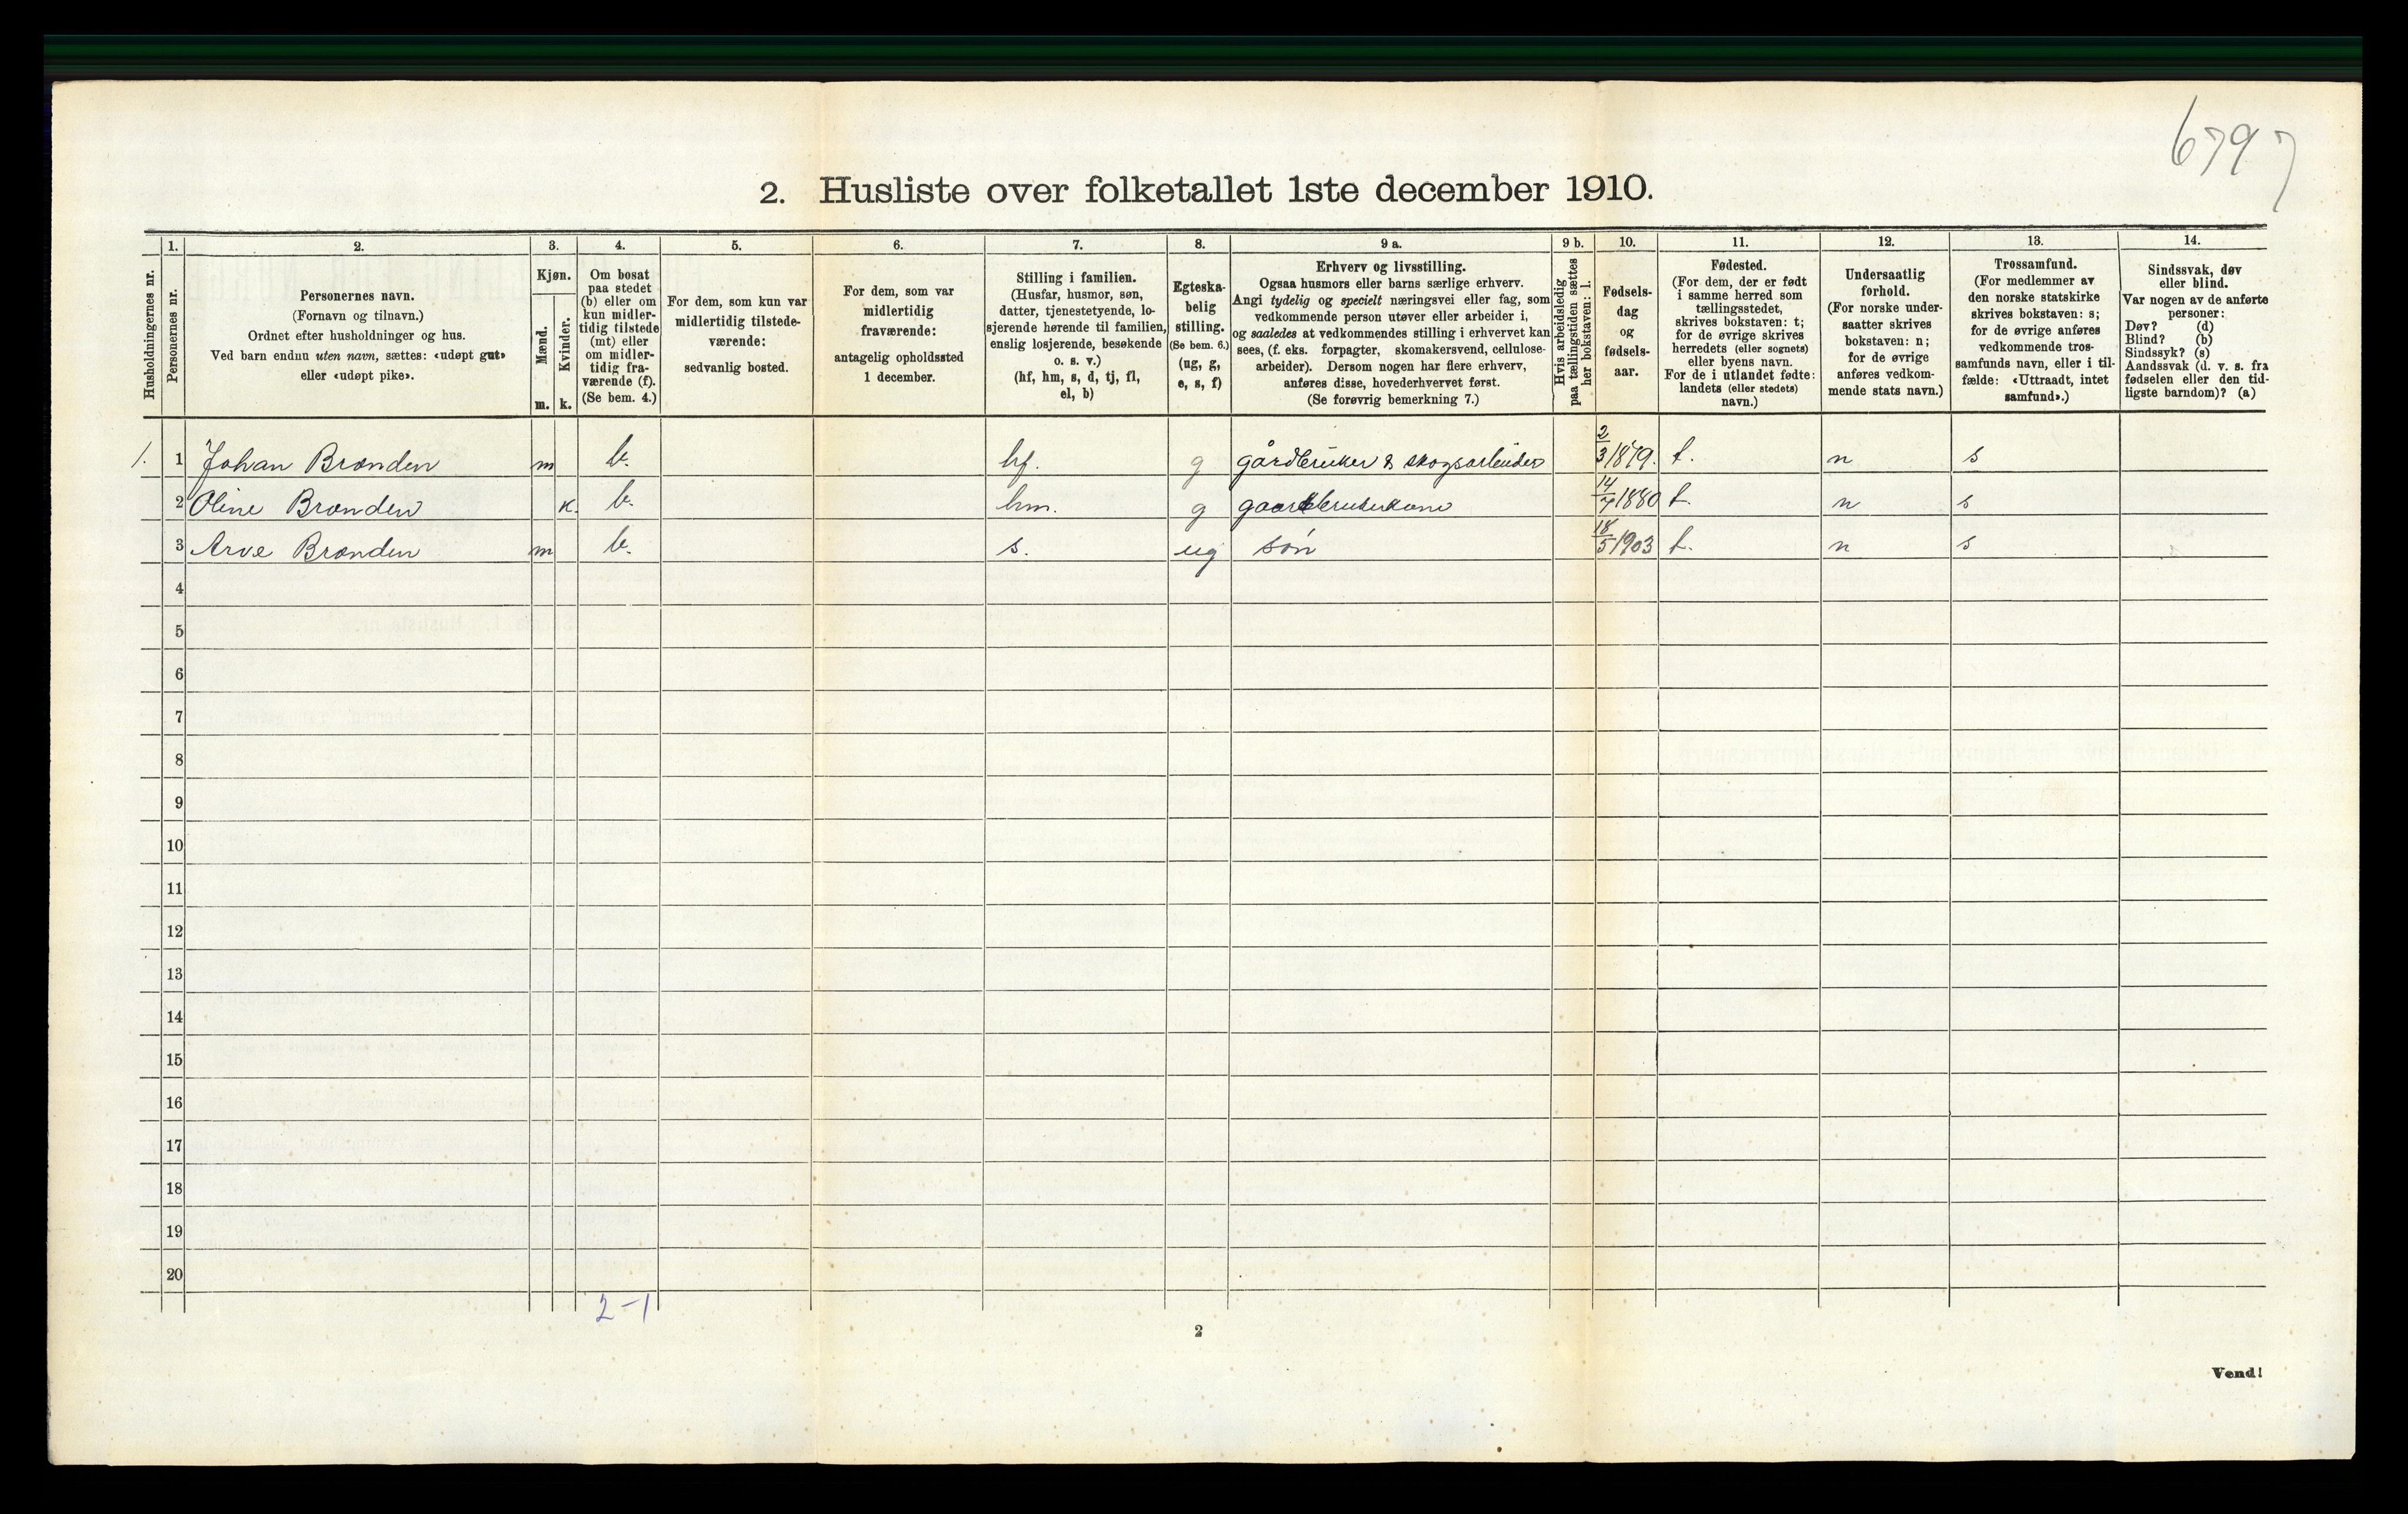 6797
2. Husliste over folketallet 1ste december 1910.
Husholdningernes nr.
1.
Personernes nr.
2.
Personernes navn.
(Fornavn og tilnavn.)
Ordnet efter husholdninger og hus.
Ved barn endnu uten navn, sættes: «udøpt gut»
eller «udøpt pike».
3.
Kjøn.
Mænd.
m.
Kvinder.
k.
4.
Om bosat
paa stedet
(b) eller om
kun midler-
tidig tilstede
(mt) eller
om midler-
tidig fra-
værende (f).
(Se bem. 4.)
5.
For dem, som kun var
midlertidig tilstede-
værende:
sedvanlig bosted.
6.
For dem, som var
midlertidig
fraværende:
antagelig opholdssted
1 december.
7.
Stilling i familien.
(Husfar, husmor, søn,
datter, tjenestetyende, lo-
sjerende hørende til familien,
enslig losjerende, besøkende
o. s. v.)
(hf, hm, s, d, tj, fl,
el, b)
8.
Egteska-
belig
stilling.
(Se bem. 6.)
(ug, g,
e, s, f)
9 a.
Erhverv og livsstilling.
Ogsaa husmors eller barns særlige erhverv.
Angi tydelig og specielt næringsvei eller fag, som
vedkommende person utøver eller arbeider i,
og saaledes at vedkommendes stilling i erhvervet kan
sees, (f. eks. forpagter, skomakersvend, cellulose-
arbeider). Dersom nogen har flere erhverv,
anføres disse, hovederhvervet først.
(Se forøvrig bemerkning 7.)
9 b.
Hvis arbeidsledig
paa tællingstiden sættes
her bokstaven: l.
10.
Fødsels-
dag
og
fødsels-
aar.
11.
Fødested.
(For dem, der er født
i samme herred som
tællingsstedet,
skrives bokstaven: t;
for de øvrige skrives
herredets (eller sognets)
eller byens navn.
For de i utlandet fødte:
landets (eller stedets)
navn.)
12.
Undersaatlig
forhold.
(For norske under-
saatter skrives
bokstaven: n;
for de øvrige
anføres vedkom-
mende stats navn.)
13.
Trossamfund.
(For medlemmer av
den norske statskirke
skrives bokstaven: s;
for de øvrige anføres
vedkommende tros-
samfunds navn, eller i til-
fælde: «Uttraadt, intet
samfund».)
14.
Sindssvak, døv
eller blind.
Var nogen av de anførte
personer:
Døv? (d)
Blind? (b)
Sindssyk? (s)
Aandssvak (d. v. s. fra
fødselen eller den tid-
ligste barndom)? (a)
1. 1 Johan Brænden m b. hf. g gårdbruker & skogsarbeider 2/3 1879. t. n s
2 Oline Brænden k. b. hm. g gaardbrukerkone 14/7 1880 t. n s
3 Arve Brænden m b. s. ug søn 18/5 1903 t. n s
4
5
6
7
8
9
10
11
12
13
14
15
16
17
18
19
20
2-1
2
Vend!